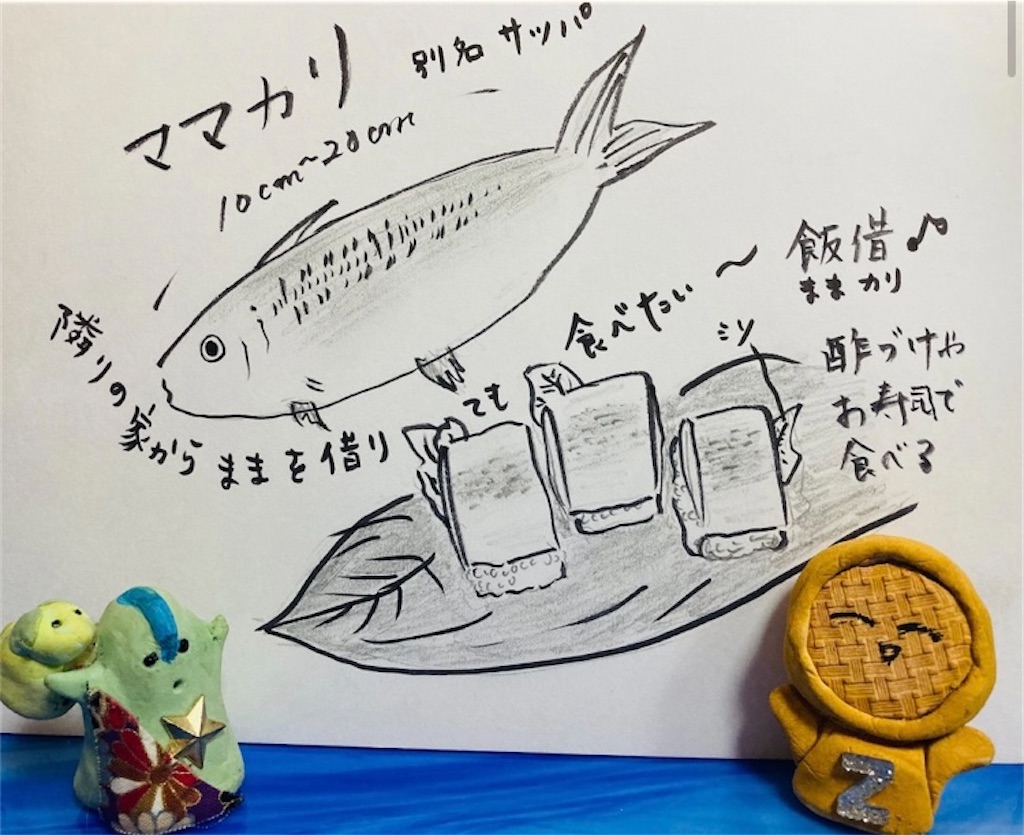 ママカリ
別名 サッパ
10cm~20cm
隣りの家から ままを借り
ても
食べたい〜
飯借♪
ままカリ
ミソ
酢づけや
お寿司で
食べる
Z